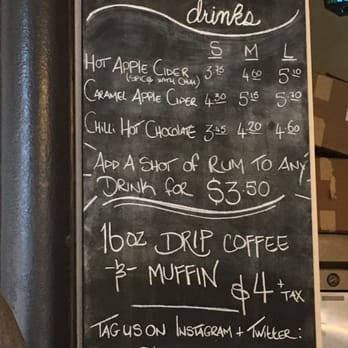 drinks
S M L
HOT APPLE CIDER 3.75 4.60 5.10
(SPICED WITH CHAI)
CARAMEL APPLE CIDER 4.30 5.15 5.70
CHILI HOT CHOCOLATE 3.45 4.20 4.60
ADD A SHOT OF RUM TO ANY
DRINK FOR $3.50
16oz DRIP COFFEE
-&- MUFFIN $4 + TAX
TAG US ON INSTAGRAM + TWITTER: